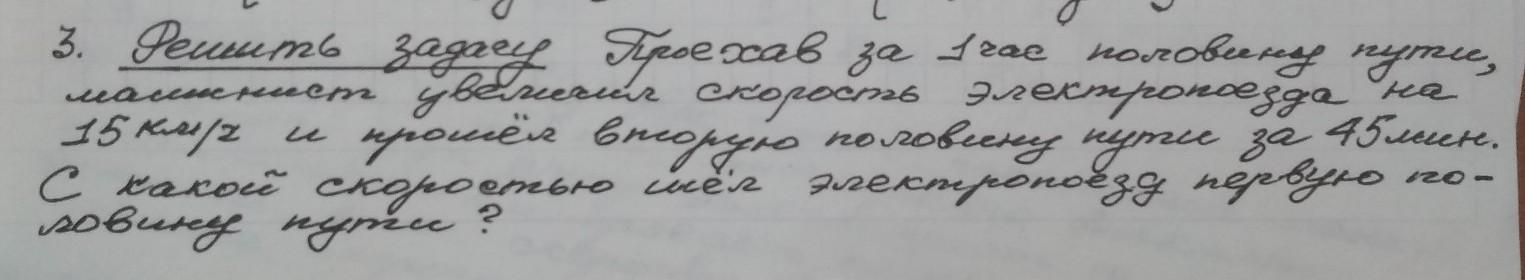 3. Решить задачу Проехав за 1 час половину пути,
машинист увеличил скорость электропоезда на
15 км/ч и прошёл вторую половину пути за 45 мин.
С какой скоростью шёл электропоезд первую по-
ловину пути?